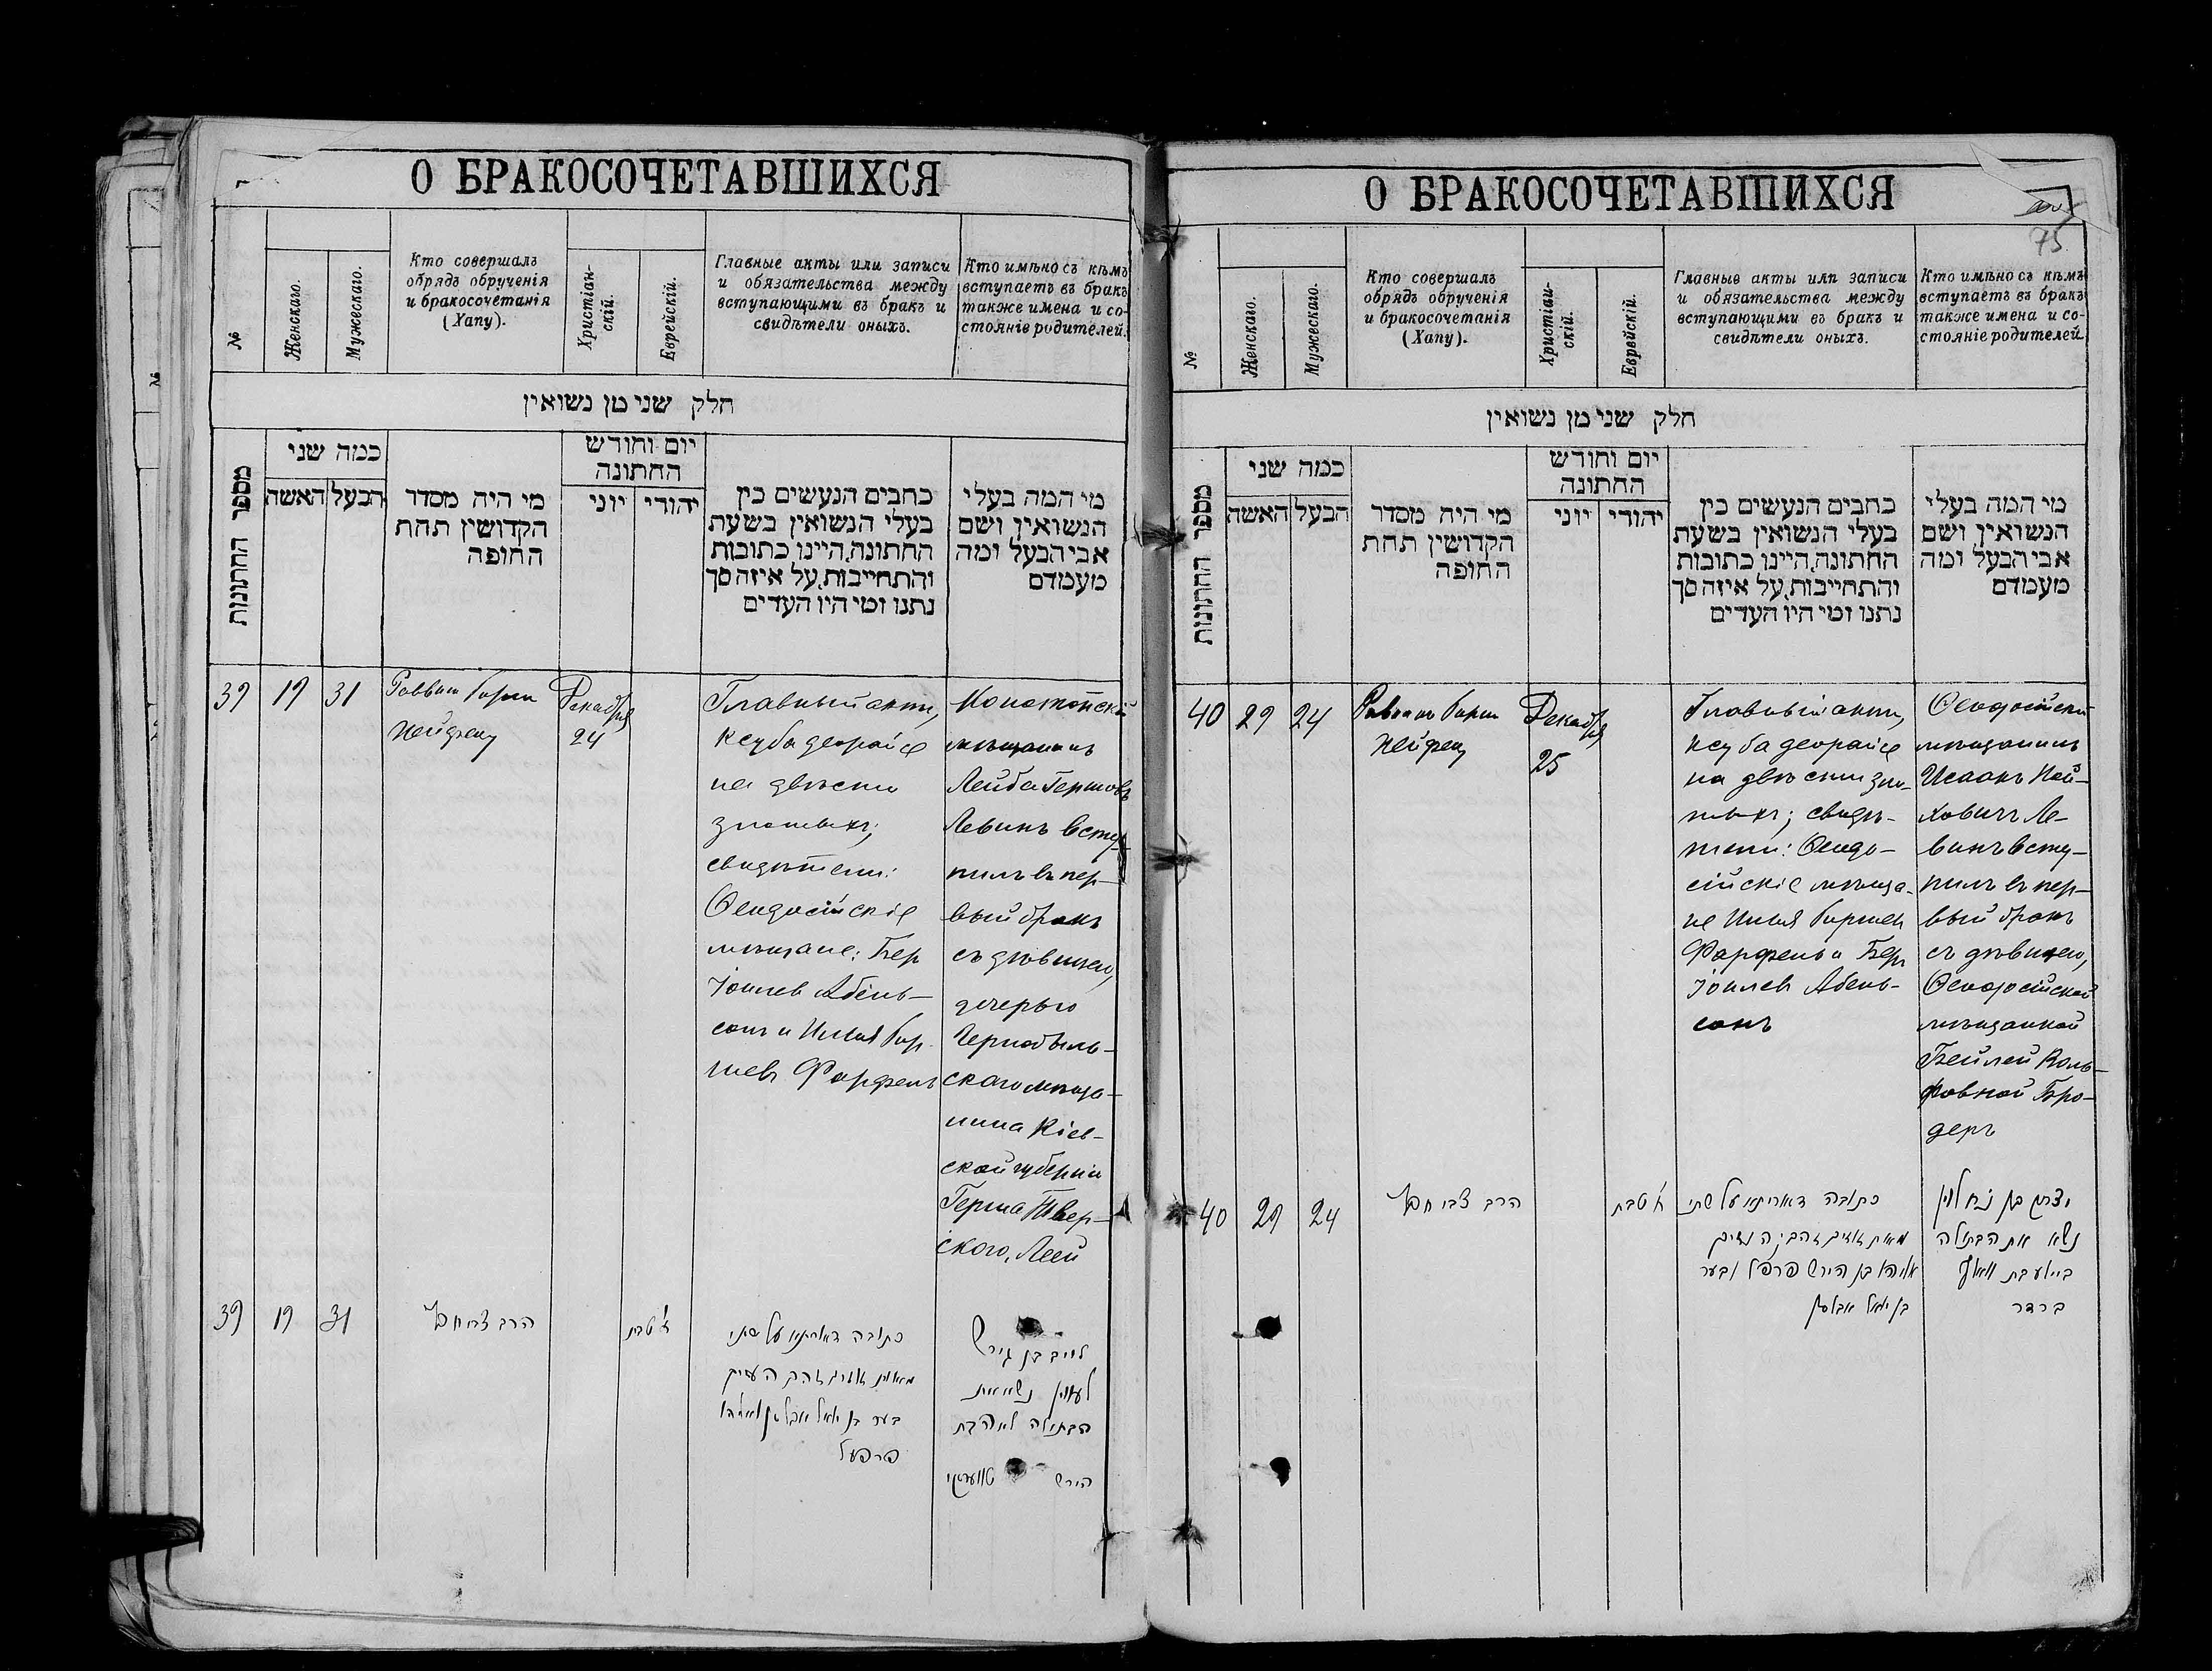 О БРАКОСОЧЕТАВШИХСЯ
№
Женскаго.
Мужескаго.
Кто совершалъ
обрядъ обрученія
и бракосочетанія
(Хапу).
Христіан-
скій.
Еврейскій.
Главные акты или записи
и обязательства между
вступающими въ бракъ и
свидѣтели оныхъ.
Кто имѣно съ кѣмъ
вступаетъ въ бракъ
также имена и со-
стояніе родителей.
חלק שני מן נשואין
מספר החתונות
כמה שני
האשה
הבעל
מי היה מסדר
הקדושין תחת
החופה
יום וחודש
החתונה
יוני
יהודי
כתבים הנעשים בין
בעלי הנשואין בשעת
החתונה, היינו כתובות
והתחייבות, על איזה סך
נתנו ומי היו העדים
מי המה בעלי
הנשואין ושם
אבי הבעל ומה
מעמדם
39
19
31
Раввинъ Гирш
Нейфец
Декабря
24
Главный актъ,
ксуба деорайсе
на двѣсти
злотыхъ;
свидѣтели:
Ѳеодосійскіе
мѣщане: Бер
Іоилев Абель-
сонъ и Илья Гир-
шевъ Фарфель
мѣщанинъ
Лейба Гершовъ
Левинъ всту-
пилъ въ пер-
вый бракъ
съ дѣвицею,
дочерью
Чернобыль-
скаго мѣща-
нина Кіев-
ской губерніи
Герша Твер-
скаго, Леей
39
19
31
הרב צבי חפץ
טבת
כתובה דאורייתא על שתי
מאות זהב העדים
בער בן יואל אבלסון ואליהו
פרפעל
לייב בן הירש
לעווין נשא את
הבתולה לאה בת
הירש טווערסקי
О БРАКОСОЧЕТАВШИХСЯ
75
№
Женскаго.
Мужескаго.
Кто совершалъ
обрядъ обрученія
и бракосочетанія
(Хапу).
Христіан-
скій.
Еврейскій.
Главные акты или записи
и обязательства между
вступающими въ бракъ и
свидѣтели оныхъ.
Кто имѣно съ кѣмъ
вступаетъ въ бракъ
также имена и со-
стояніе родителей.
חלק שני מן נשואין
מספר החתונות
כמה שני
האשה
הבעל
מי היה מסדר
הקדושין תחת
החופה
יום וחודש
החתונה
יוני
יהודי
כתבים הנעשים בין
בעלי הנשואין בשעת
החתונה, היינו כתובות
והתחייבות, על איזה סך
נתנו ומי היו העדים
מי המה בעלי
הנשואין ושם
אבי הבעל ומה
מעמדם
40
29
24
Раввинъ Гирш
Нейфец
Декабря
25
Главный актъ,
ксуба деорайсе
на двѣсти зло-
тыхъ; свидѣ-
тели: Ѳеодо-
сійскіе мѣща-
не Илья Гиршев
Фарфель и Беръ
Іоилев Абель-
сонъ
Ѳеодосійскій
мѣщанинъ
Исаакъ Ной-
ховичъ Ле-
винъ всту-
пилъ въ пер-
вый бракъ
съ дѣвицею,
Ѳеодосійской
мѣщанкой
Бейлей Воль-
фовной Бро-
деръ
40
29
24
הרב צבי חפץ
טבת
כתובה דאורייתא על שתי
מאות זהב העדים
אליהו בן הירש פרפל ובער
בן יואל אבלסון
יצחק בן נח לוין
נשא את הבתולה
ביילע בת וואלף
ברדר